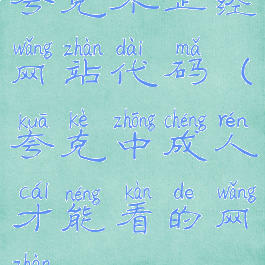 夸克不正经
wǎng zhàn dài mǎ
网站代码（
kuā kè zhōng chéng rén
夸克中成人
cái néng kàn de wǎng
才能看的网
zhàn